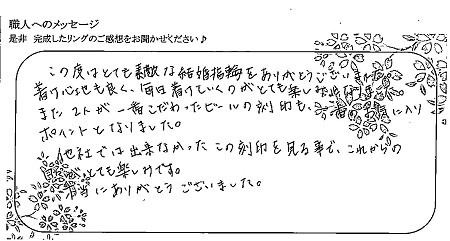 職人へのメッセージ
是非 完成したリングのご感想をお聞かせください♪
この度はとても素敵な結婚指輪をありがとうございました。
着け心地も良く、毎日着けていくのがとても楽しみです。
また2人が一番こだわったビールの刻印も、一番のお気に入り
ポイントとなりました。
他社では出来なかったこの刻印を見る事で、これからの
とても楽しみです。
本当にありがとうございました。